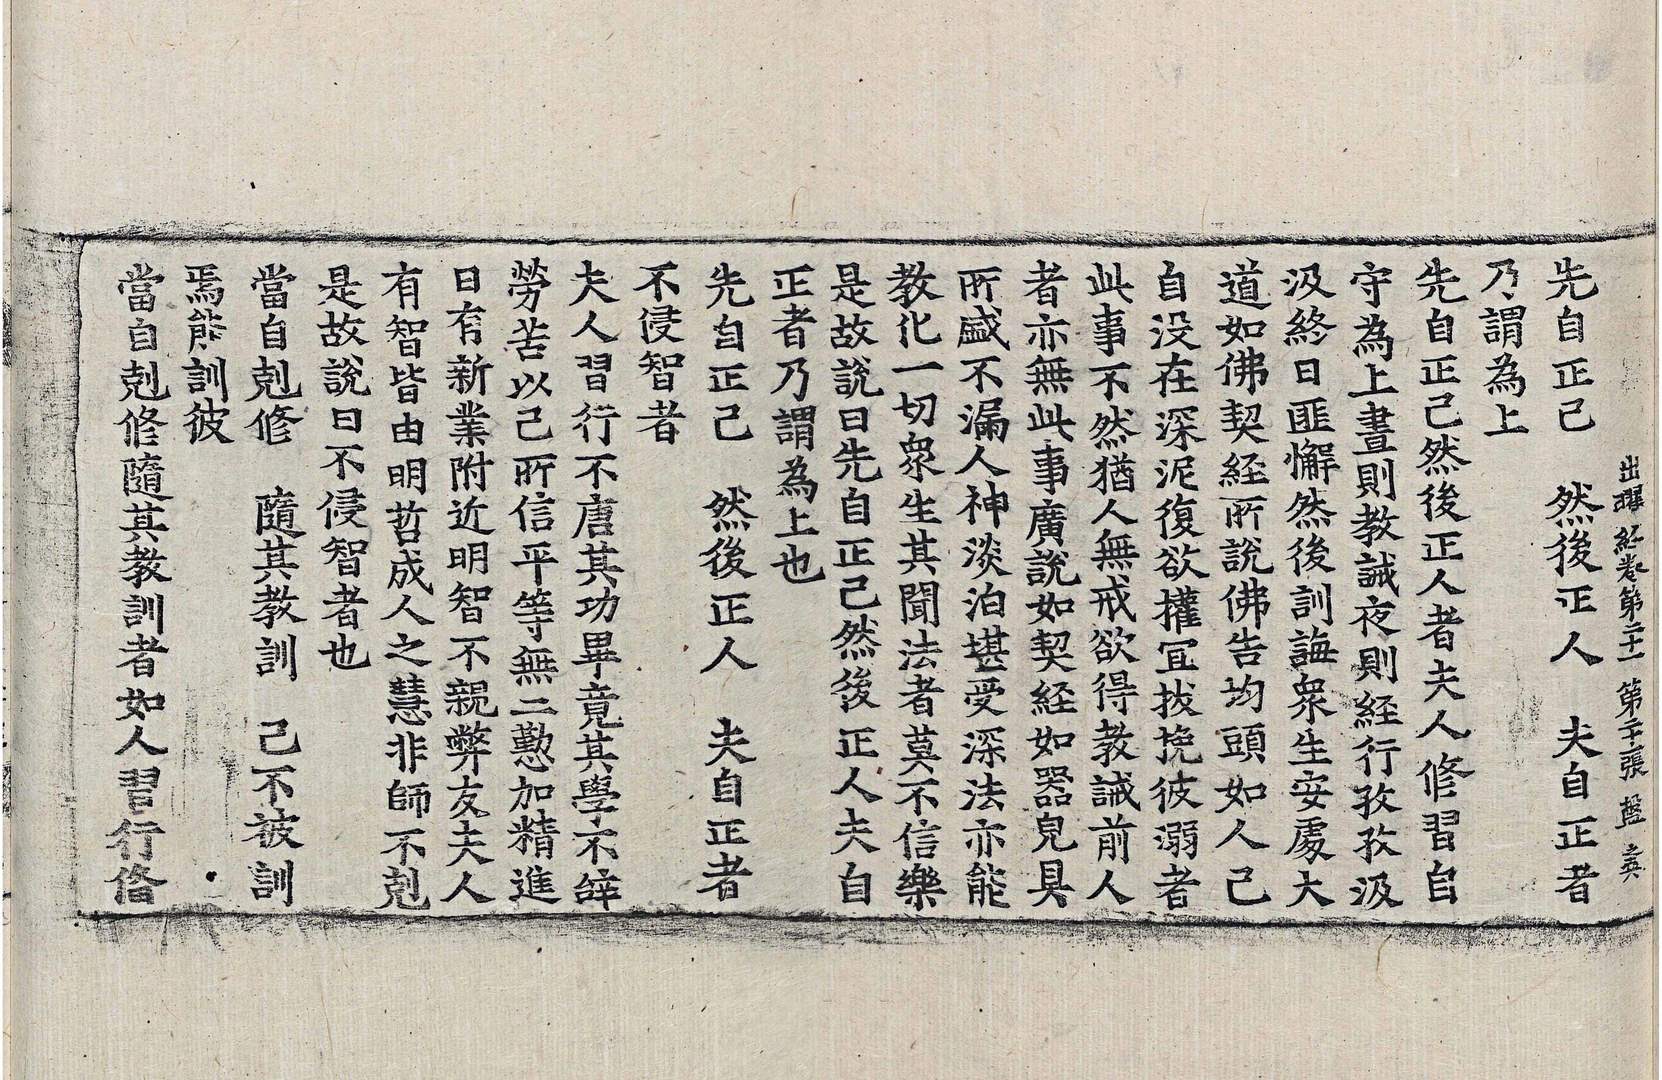 出曜経卷第二十一 第二十張 盤 英
先自正己 然後正人 夫自正者
乃謂為上
先自正己然後正人者夫人修習自
守為上晝則教誡夜則経行孜孜汲
汲終日匪懈然後訓誨衆生安處大
道如佛契経所說佛告均頭如人己
自没在深泥復欲權冝拔挽彼溺者
此事不然猶人無戒欲得教誡前人
者亦無此事廣說如契経如器皃具
所盛不漏人神淡泊堪受深法亦能
教化一切衆生其聞法者莫不信樂
是故說曰先自正己然後正人夫自
正者乃謂為上也
先自正己 然後正人 夫自正者
不侵智者
夫人習行不唐其功畢竟其學不辞
勞苦以己所信平等無二懃加精進
日有新業附近明智不親弊友夫人
有智皆由明哲成人之慧非師不剋
是故說曰不侵智者也
當自剋修 隨其教訓 己不被訓
焉能訓彼
當自剋修隨其教訓者如人習行俻